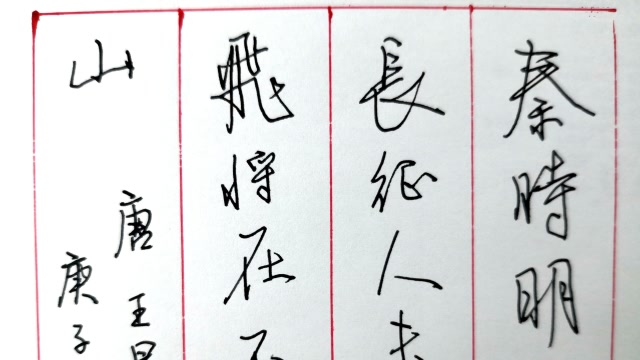 秦時明
長征人未
飛将在不
山
唐王昌
庚子